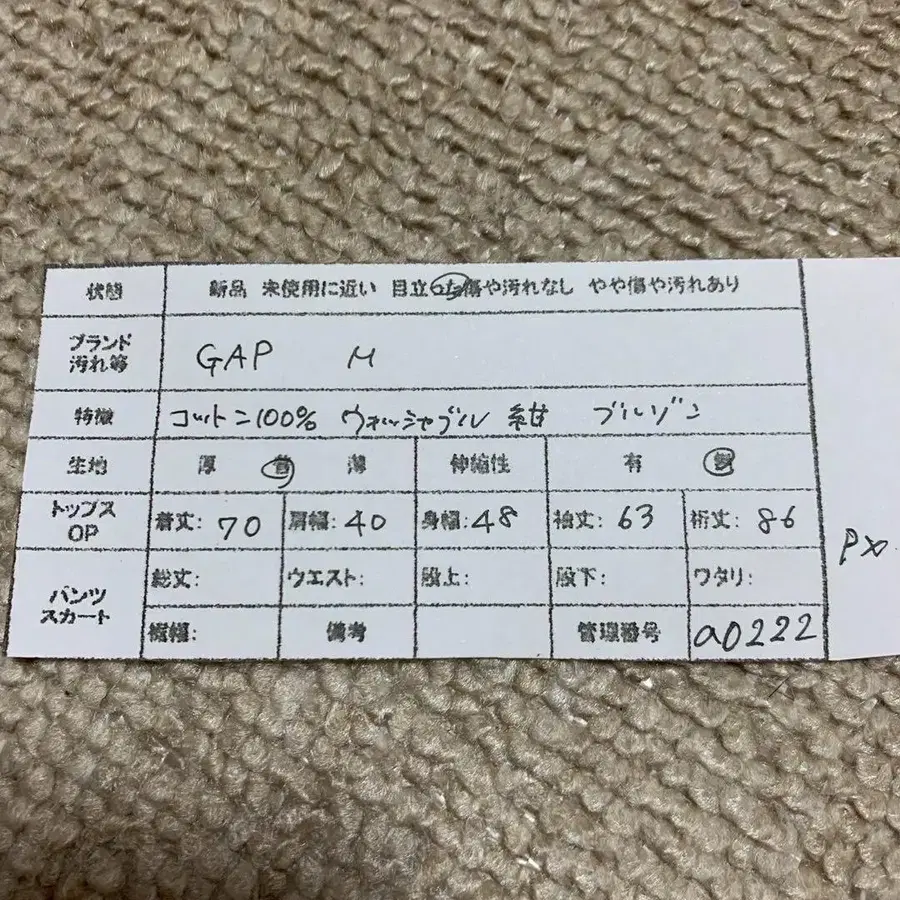 状態 新品 未使用に近い 目立った傷や汚れなし やや傷や汚れあり
ブランド
汚れ等 GAP M
特徴 コットン100% ウォッシャブル 紺 ブルゾン
生地 厚 普 薄 伸縮性 有 無
トップス
OP 着丈: 70 肩幅: 40 身幅: 48 袖丈: 63 裄丈: 86
パンツ
スカート 総丈: ウエスト: 股上: 股下: ワタリ:
裾幅: 備考 管理番号 a0222